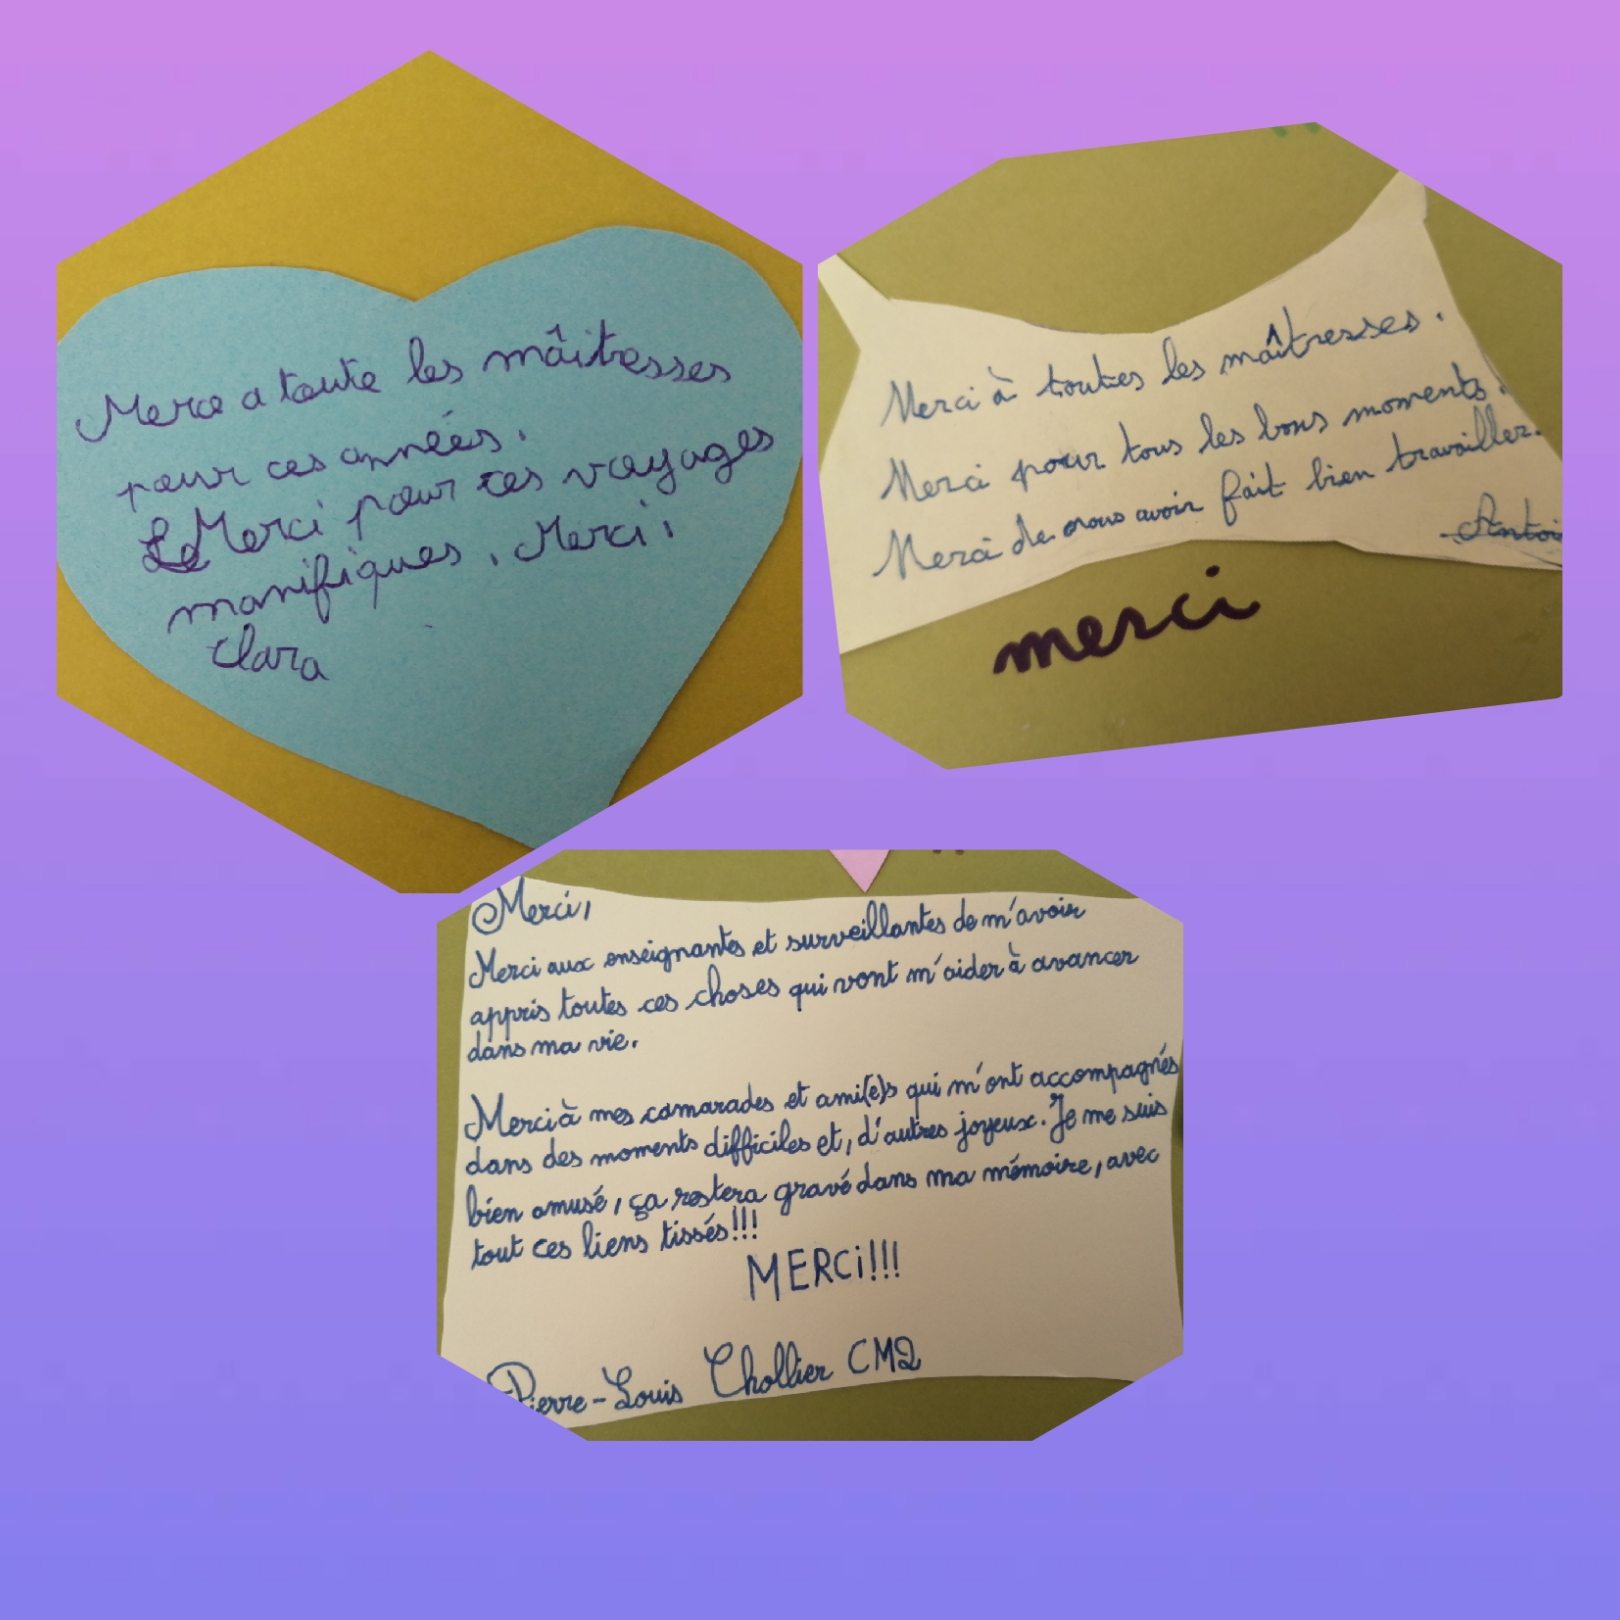 Merce a toute les mâitresses
pour ces années.
Merci pour ces voyages
manifiques. Merci!
Clara
Merci à toutes les maîtresses.
Merci pour tous les bons moments.
Merci de nous avoir fait bien travailler.
-Antoi
merci
Merci,
Merci aux enseignantes et surveillantes de m'avoir
appris toutes ces choses qui vont m'aider à avancer
dans ma vie.
Merci à mes camarades et ami(e)s qui m'ont accompagnés
dans des moments difficiles et, d'autres joyeux. Je me suis
bien amusé, ça restera gravé dans ma mémoire, avec
tout ces liens tissés!!!
MERCi!!!
Pierre-Louis Chollier CM2